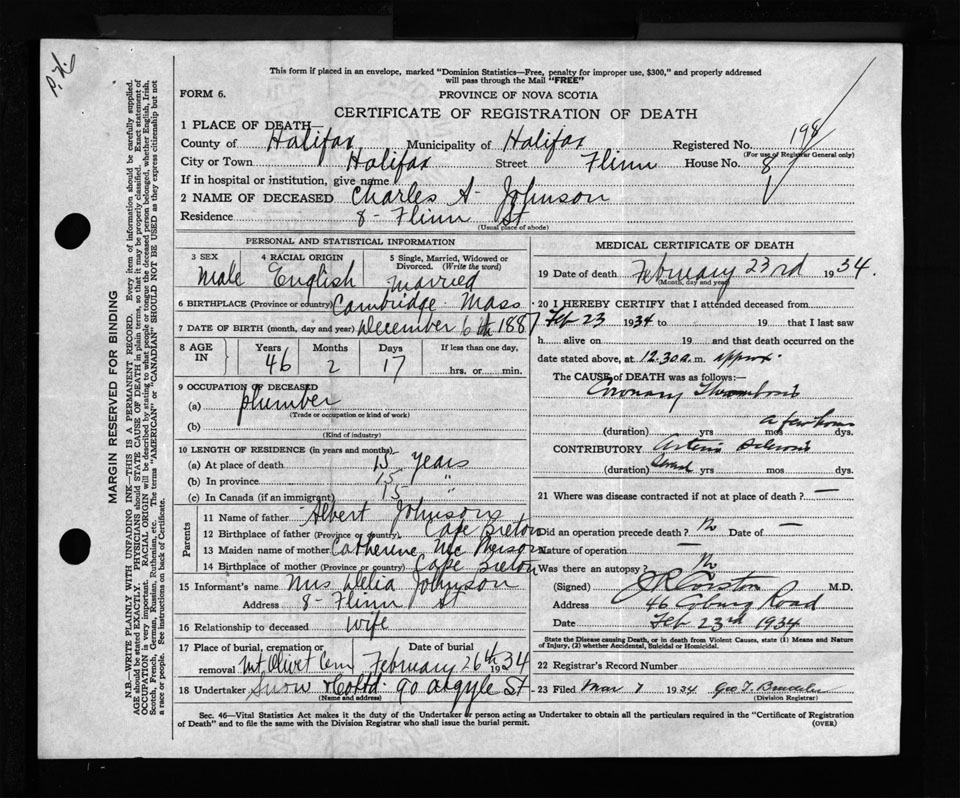 This form if placed in an envelope, marked "Dominion Statistics—Free, penalty for improper use, $300," and properly addressed
will pass through the Mail "FREE"
P.H.
FORM 6.
PROVINCE OF NOVA SCOTIA
CERTIFICATE OF REGISTRATION OF DEATH
1 PLACE OF DEATH—
County of Halifax Municipality of Halifax Registered No. 198
(For use of Registrar General only)
City or Town Halifax Street Flinn House No. 8
If in hospital or institution, give name
2 NAME OF DECEASED Charles A- Johnson
Residence 8- Flinn St
(Usual place of abode)
MARGIN RESERVED FOR BINDING
N.B.—WRITE PLAINLY WITH UNFADING INK—THIS IS A PERMANENT RECORD. Every item of information should be carefully supplied.
AGE should be stated EXACTLY. PHYSICIANS should STATE CAUSE OF DEATH in plain terms, so that it may be properly classified. Exact statement of
OCCUPATION is very important. RACIAL ORIGIN will be described by stating to what people or tongue the deceased person belonged, whether English, Irish,
Scotch, French, German, Russian, Ruthenian, etc. The terms "AMERICAN" or "CANADIAN" SHOULD NOT BE USED as they express citizenship but not
a race or people. See instructions on back of Certificate.
PERSONAL AND STATISTICAL INFORMATION
3 SEX
Male
4 RACIAL ORIGIN
English
5 Single, Married, Widowed or
Divorced. (Write the word)
Married
6 BIRTHPLACE (Province or country) Cambridge Mass
7 DATE OF BIRTH (month, day and year) December 6th 1887
8 AGE
IN
Years Months Days If less than one day,
46 2 17 hrs. or min.
9 OCCUPATION OF DECEASED
(a) plumber
(Trade or occupation or kind of work)
(b)
(Kind of industry)
10 LENGTH OF RESIDENCE (in years and months)
(a) At place of death 15 years
(b) In province 15 "
(c) In Canada (if an immigrant) 15
Parents
11 Name of father Albert Johnson
12 Birthplace of father (Province or country) Cape Breton
13 Maiden name of mother Catherine McPherson
14 Birthplace of mother (Province or country) Cape Breton
15 Informant's name Mrs Delia Johnson
Address 8- Flinn St
16 Relationship to deceased wife
17 Place of burial, cremation or Date of burial
removal Mt Olivet Cem February 26th 1934
18 Undertaker Snow & Co Ltd 90 Argyle St
(Name and address)
MEDICAL CERTIFICATE OF DEATH
19 Date of death February 23rd 1934.
(Month, day and year)
20 I HEREBY CERTIFY that I attended deceased from
Feb 23 1934 to 19 that I last saw
h alive on 19 and that death occurred on the
date stated above, at 12.30 a.m. approx.
The CAUSE of DEATH was as follows:—
Coronary Thrombosis
a few hours
(duration) yrs mos dys.
CONTRIBUTORY Arterio Sclerosis
(duration) yrs mos dys.
21 Where was disease contracted if not at place of death? —
Did an operation precede death? No Date of —
Nature of operation —
Was there an autopsy? No
(Signed) M.D.
Address 46 Coburg Road
Date Feb 23rd 1934
State the Disease causing Death, or in death from Violent Causes, state (1) Means and Nature
of Injury, (2) whether Accidental, Suicidal or Homicidal.
22 Registrar's Record Number
23 Filed Mar 7 1934 Geo T.
(Division Registrar)
Sec. 46—Vital Statistics Act makes it the duty of the Undertaker or person acting as Undertaker to obtain all the particulars required in the "Certificate of Registration
of Death" and to file the same with the Division Registrar who shall issue the burial permit.
(OVER)